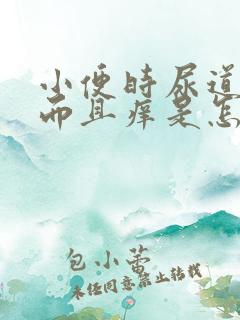 小便时尿道
而且痒是怎
包小蕾
未经同意禁止转载